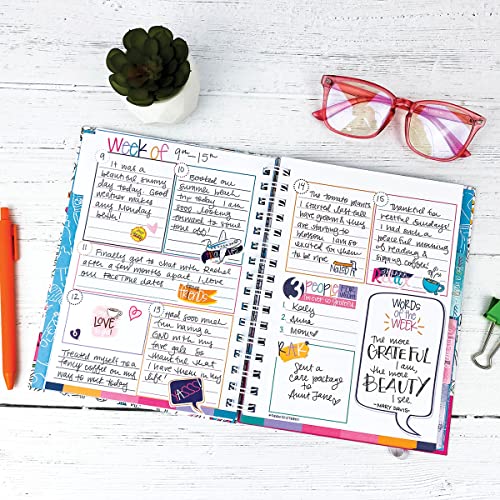 Week of 9th - 15th
9
It was a
beautiful sunny
day today. Good
weather makes
any Monday
better!
10
Booked our
summer beach
trip today I am
SOOO looking
forward to your
time off!
11
Finally got to chat with Rachel
after a few months apart. I love
our FaceTime dates
friends
12
LOVE
Treated myself to a
fancy coffee on my
way to work today
13
Had SOOO much
fun having a
GNO with my
fave girls. So
thankful that
I have them in my
life!
14
The tomato plants
I started last fall
have grown & they
are starting to
blossom. I am so
excited for them
to be ripe
15
Thankful for
restful Sundays!
I had such a
peaceful morning
of reading &
sipping coffee!
RELAX
3 PEOPLE
1. Kaily
2. Anna
3. Mom
RAK
Sent a
care package
to
Aunt Jane
WORDS
of the
WEEK
The more
GRATEFUL
I am,
the more
BEAUTY
I see.
-MARY DAVIS